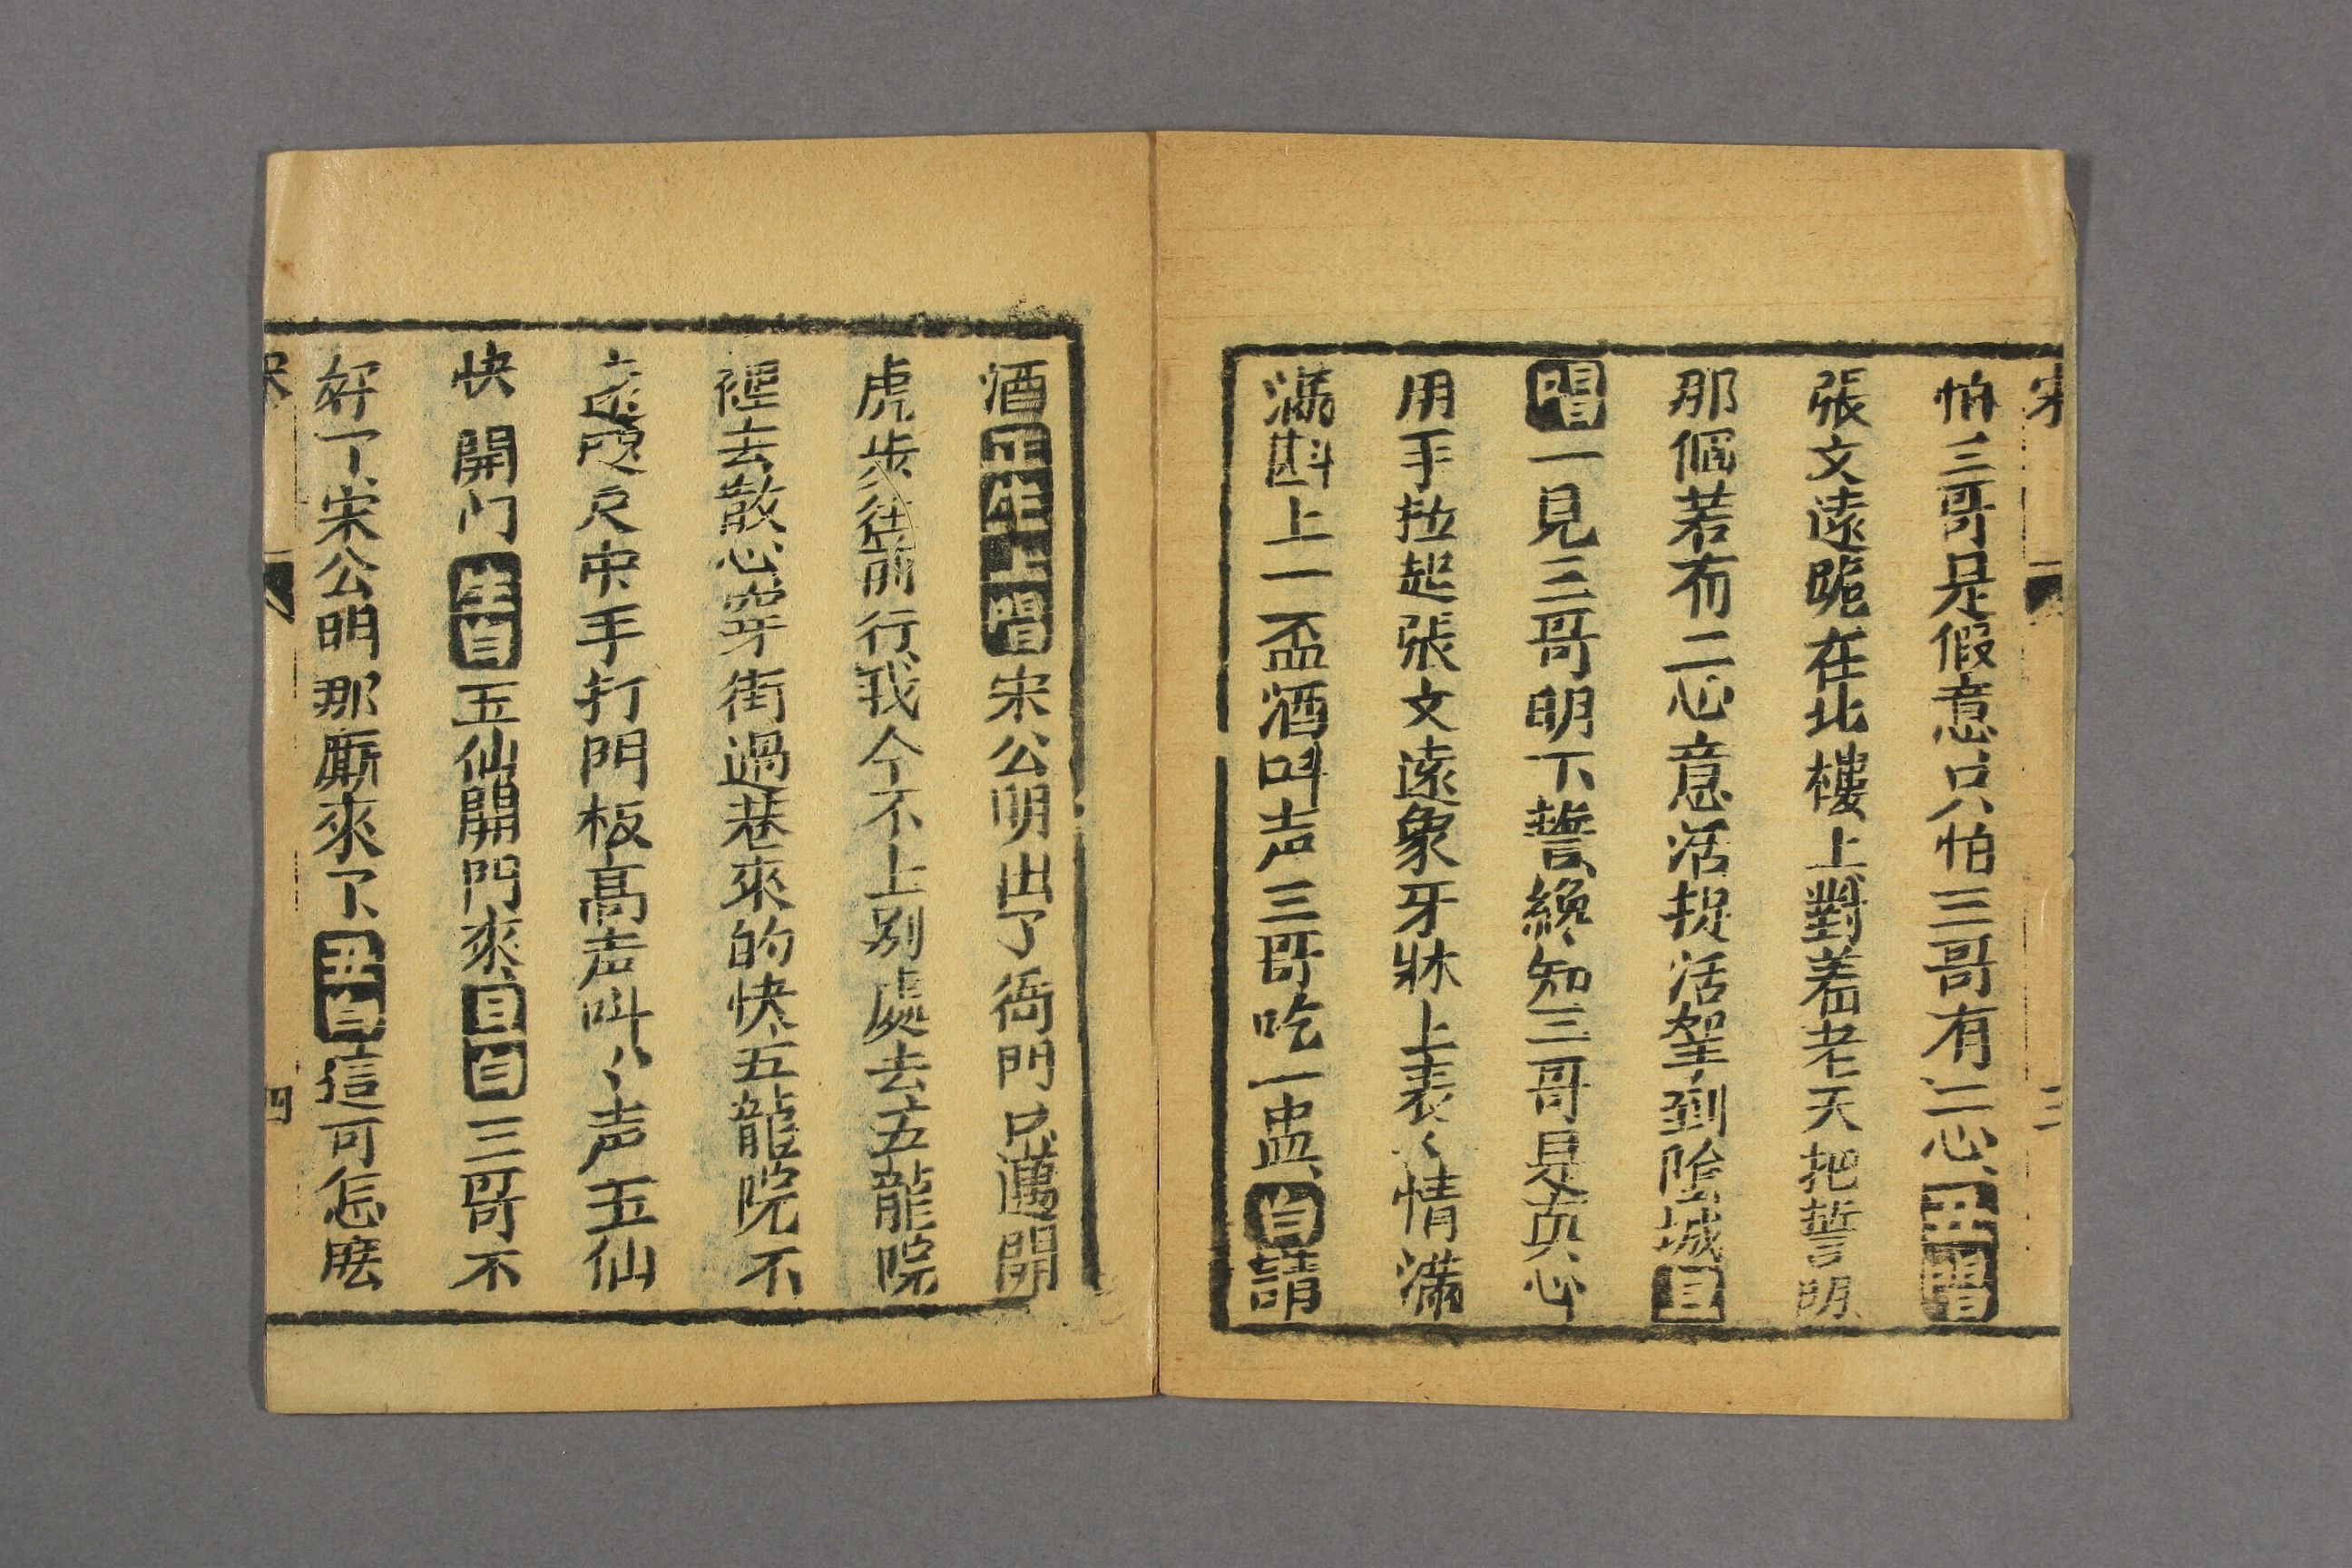 宋
三
怕三哥是假意只怕三哥有二心丑唱
張文遠跪在北樓上對着老天把誓明
那個若有二心意活捉活拏到陰城旦
唱一見三哥明下誓纔知三哥是真心
用手拉起張文遠象牙牀上表〻情滿
滿斟上一盃酒叫声三哥吃一盅白請
酒正生上唱宋公明出了衙門忙邁開
虎步往前行我今不上别處去五龍院
裡去散心穿街過巷來的快五龍院不
遠眼尺中手打門板高声叫〻声玉仙
快開门生白玉仙開門來旦白三哥不
好了宋公明那厮來了丑白這可怎庅
宋
四